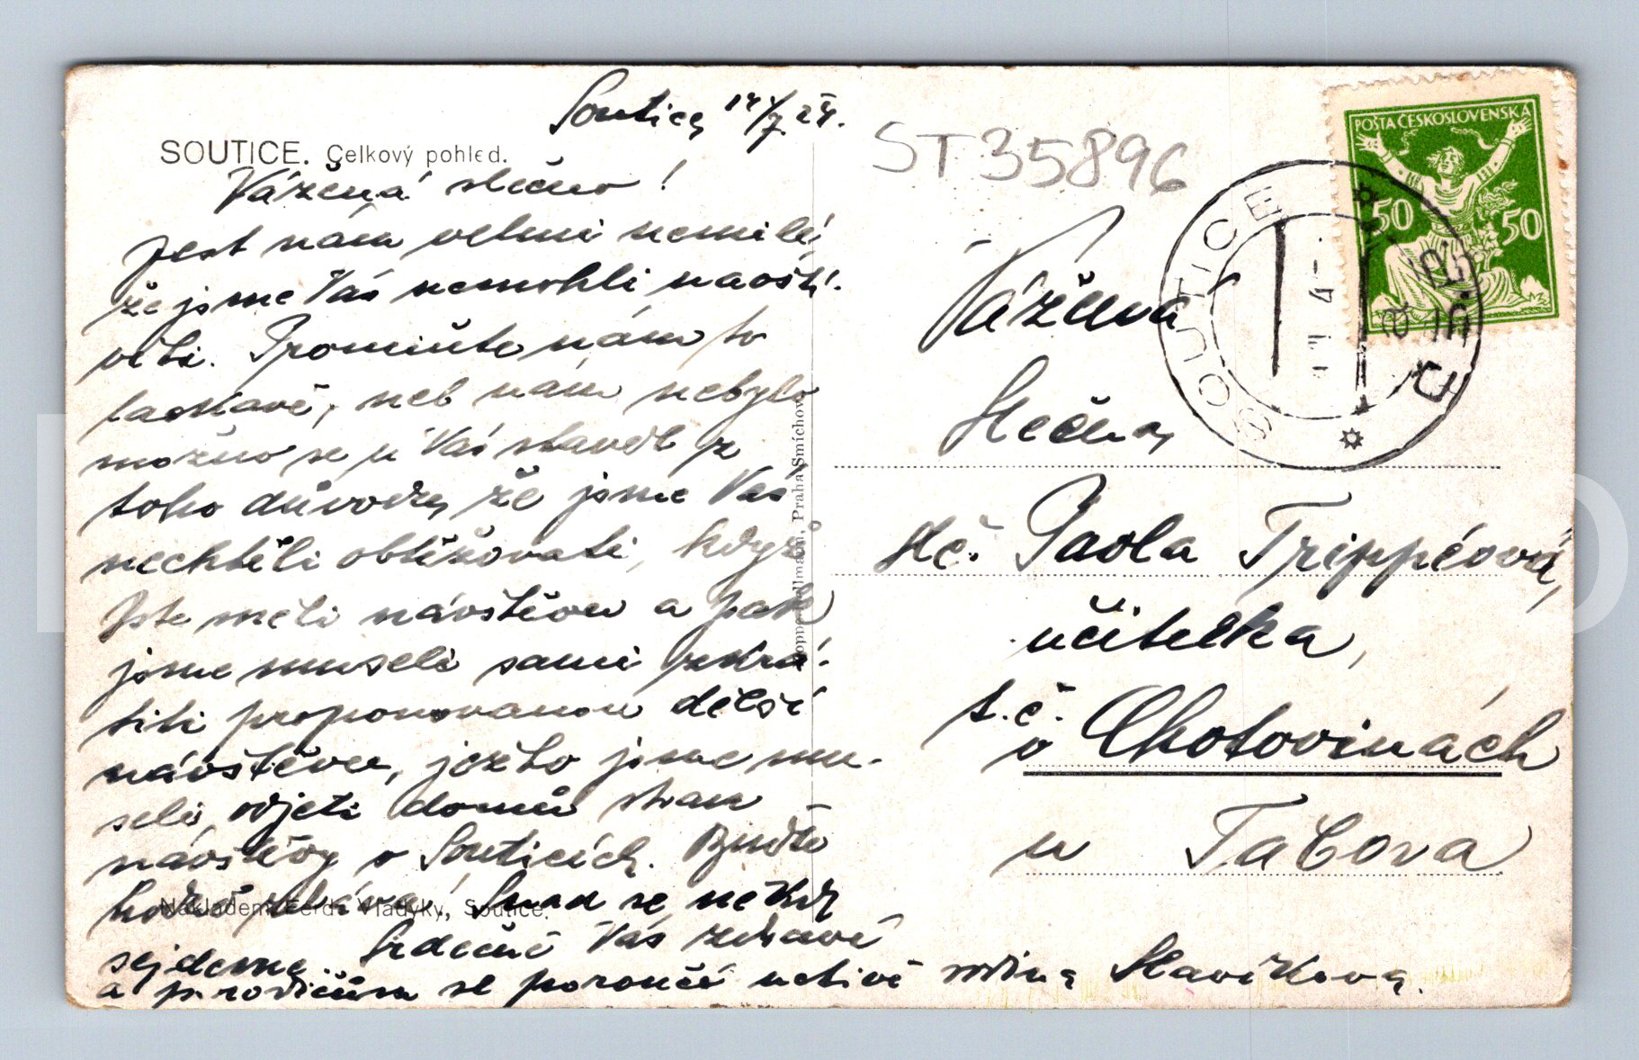 Soutice, 14/7. 24.
SOUTICE. Celkový pohled.
ST 35896
POŠTA ČESKOSLOVENSKÁ
50 50
SOUTICE
Vážená slečno!
Jest nám velmi nemilé,
že jsme Vás nemohli navští-
viti. Promiňte nám to
laskavě, neb nám nebylo
možno se u Vás stavět z
toho důvodu, že jsme Vás
nechtěli obtěžovati, když
Jste měli návštěvu a pak
jsme museli sami zkrá-
titi proponovanou delší
návštěvu, ježto jsme mu-
seli odjeti domů stran
návštěvy v Souticích. Buďte
hodně zdráva. Snad se někdy
sejdeme. Srdečně Vás zdraví
a p. rodičům se poroučí uctivě rodina Slavíkova.
Nákladem Ferd. Vladyky, Soutice.
Praha-Smíchov
Vážená
Slečna
Slč. Paola Trippéová,
učitelka,
t. č.
v Chotovinách
u Tábora